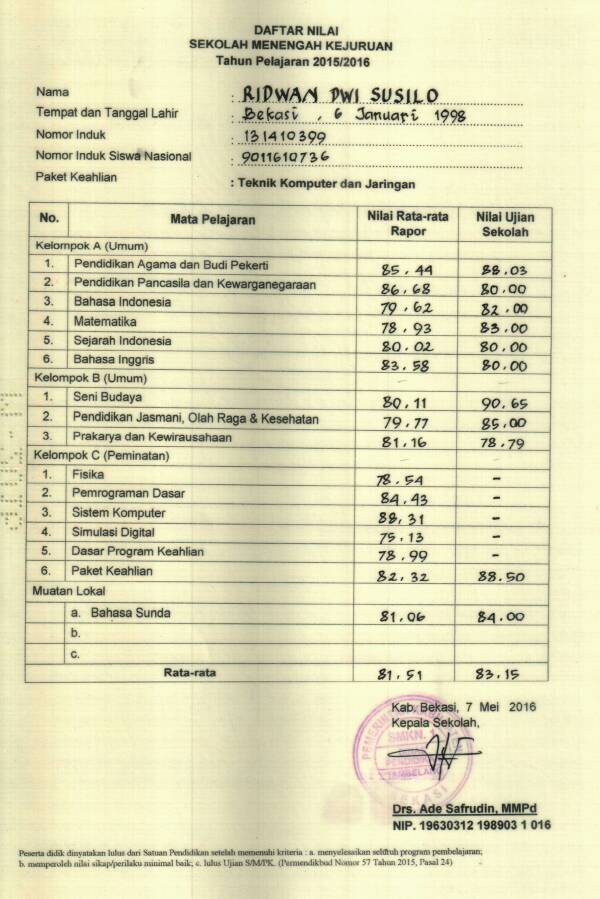 DAFTAR NILAI
SEKOLAH MENENGAH KEJURUAN
Tahun Pelajaran 2015/2016
Nama : RIDWAN DWI SUSILO
Tempat dan Tanggal Lahir : Bekasi , 6 Januari 1998
Nomor Induk : 131410399
Nomor Induk Siswa Nasional : 9011610736
Paket Keahlian : Teknik Komputer dan Jaringan
No. Mata Pelajaran Nilai Rata-rata Rapor Nilai Ujian Sekolah
Kelompok A (Umum)
1. Pendidikan Agama dan Budi Pekerti 85.44 88.03
2. Pendidikan Pancasila dan Kewarganegaraan 86.68 80.00
3. Bahasa Indonesia 79.62 82.00
4. Matematika 78.93 83.00
5. Sejarah Indonesia 80.02 80.00
6. Bahasa Inggris 83.58 80.00
Kelompok B (Umum)
1. Seni Budaya 80.11 90.65
2. Pendidikan Jasmani, Olah Raga & Kesehatan 79.77 85.00
3. Prakarya dan Kewirausahaan 81.16 78.79
Kelompok C (Peminatan)
1. Fisika 78.54 -
2. Pemrograman Dasar 84.43 -
3. Sistem Komputer 88,31 -
4. Simulasi Digital 75.13 -
5. Dasar Program Keahlian 78.99 -
6. Paket Keahlian 82,32 88.50
Muatan Lokal
a. Bahasa Sunda 81.06 84.00
b.
c.
Rata-rata 81.51 83.15
Kab. Bekasi, 7 Mei 2016
Kepala Sekolah,
SMKN. 1
Drs. Ade Safrudin, MMPd
NIP. 19630312 198903 1 016
Peserta didik dinyatakan lulus dari Satuan Pendidikan setelah memenuhi kriteria : a. menyelesaikan seluruh program pembelajaran;
b. memperoleh nilai sikap/perilaku minimal baik; c. lulus Ujian S/M/PK. (Permendikbud Nomor 57 Tahun 2015, Pasal 24)